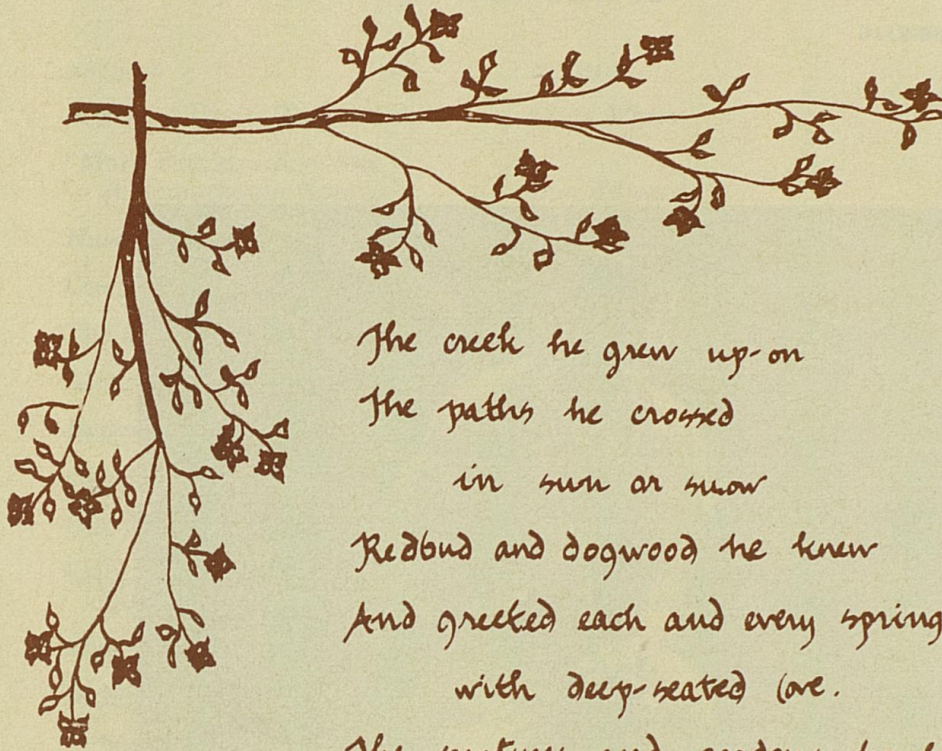 The creek he grew up-on
The paths he crossed
in sun or snow
Redbud and dogwood he knew
And greeted each and every spring
with deep-seated love.
The and